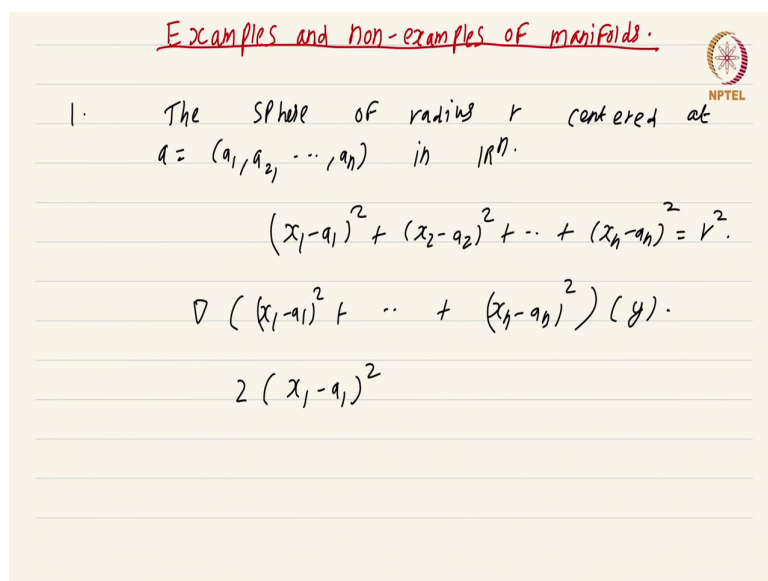 Examples and non-examples of manifolds.
NPTEL
1. The sphere of radius r centered at
a = (a₁, a₂, ..., aₙ) in ℝⁿ.
(x₁-a₁)² + (x₂-a₂)² + .. + (xₙ-aₙ)² = r².
∇ ((x₁-a₁)² + .. + (xₙ-aₙ)²) (y).
2 (x₁-a₁)²